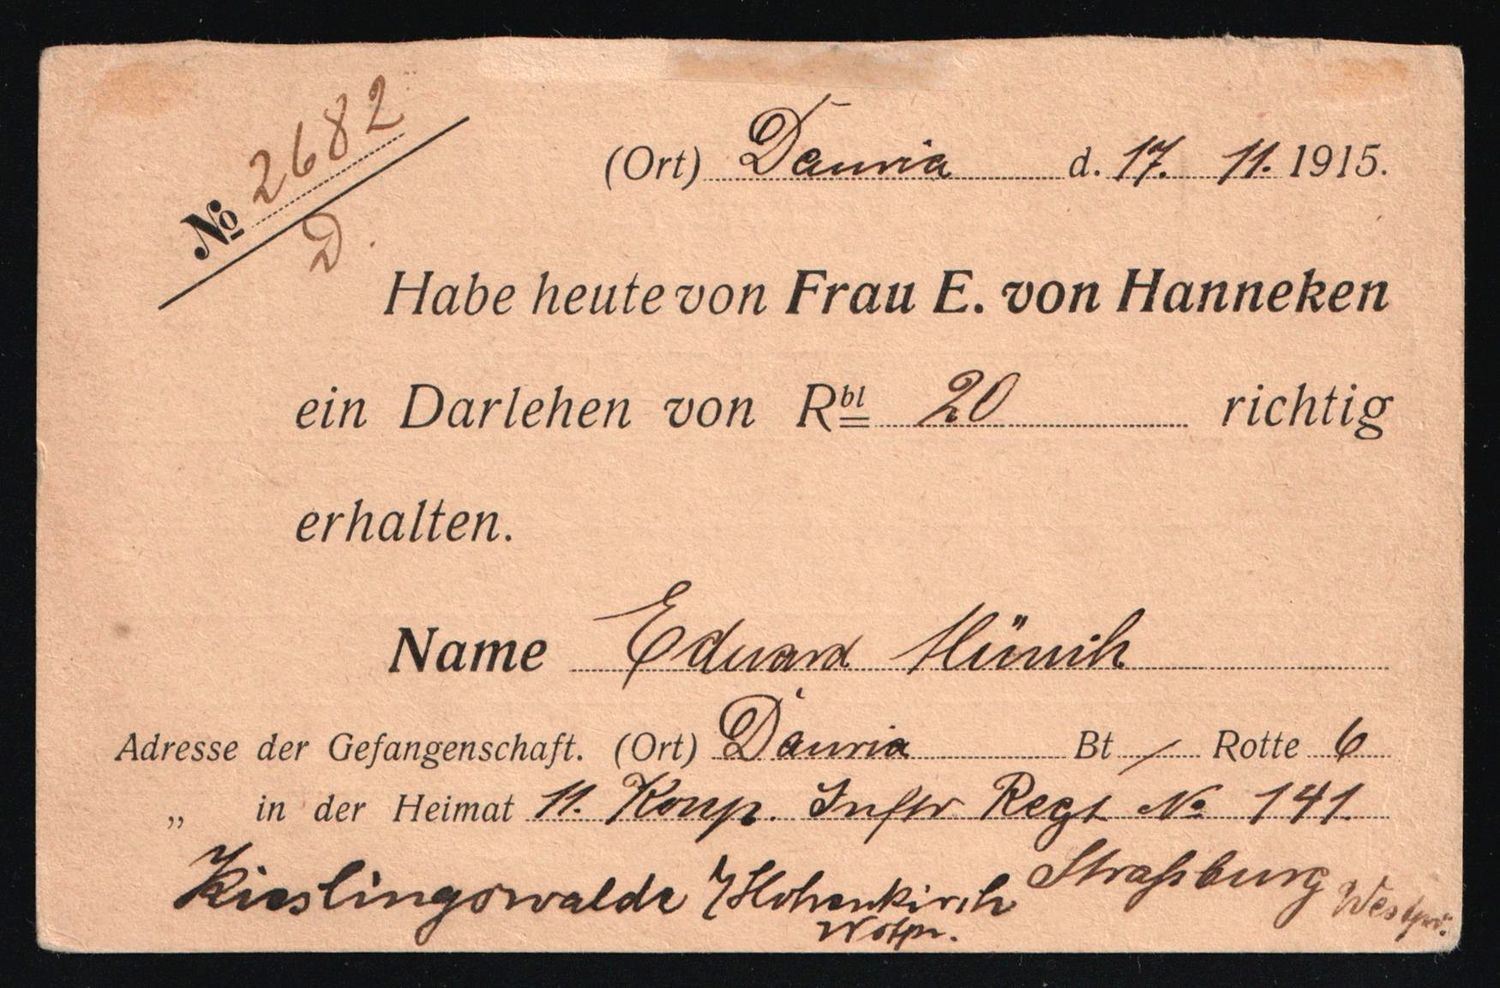 № 2682
D.
(Ort) Dauria d. 17. 11. 1915.
Habe heute von Frau E. von Hanneken
ein Darlehen von Rbl 20 richtig
erhalten.
Name Eduard Münich
Adresse der Gefangenschaft. (Ort) Dauria Bt / Rotte 6
„ in der Heimat 11. Komp. Inftr Regt No 141
Kieslingswalde / Hohenkirch Straßburg Westpr.
Wstpr.